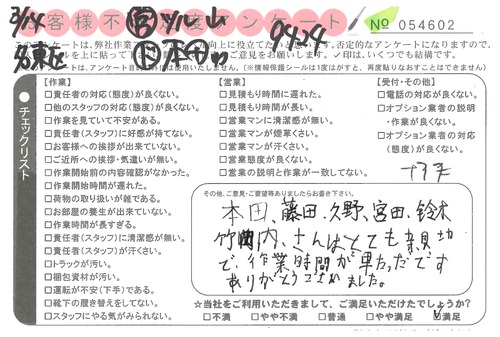 3/14 営 ツル山
お客様不満足度アンケート
No 054602
名東区 本田 9424
このアンケートは、弊社作業
向上に役立てたい
否定的なアンケートになりますので、
ご意見をお願いします。✓印は、いくつでも結構です。
アンケート以外には使用いたしません。(※情報保護シールは1度はがすと、再度貼りなおすことはできません)
チェックリスト
【作業】
□責任者の対応(態度)が良くない。
□他のスタッフの対応(態度)が良くない。
□作業を見ていて不安がある。
□責任者(スタッフ)に好感が持てない。
□お客様への挨拶が出来ていない。
□ご近所への挨拶・気遣いが無い。
□作業開始前の内容確認がなかった。
□作業開始時間が遅れた。
□荷物の取り扱いが雑である。
□お部屋の養生が出来ていない。
□作業時間が長すぎる。
□責任者(スタッフ)に清潔感が無い。
□責任者(スタッフ)が汗くさい。
□トラックが汚い。
□梱包資材が汚い。
□運転が不安(下手)である。
□靴下の履き替えをしてない。
□スタッフにやる気がみられない。
【営業】
□見積もり時間に遅れた。
□見積もり時間が長い。
□営業マンに清潔感が無い。
□営業マンが煙草くさい。
□営業マンが汗くさい。
□営業態度が良くない。
□営業の説明と作業が一致してない。
【受付・その他】
□電話の対応が良くない。
□オプション業者の説明
・作業が良くない。
□オプション業者の対応
(態度)が良くない。
その他、ご意見・ご要望等ありましたらお書き下さい。
本田、藤田、久野、宮田、鈴木
竹内、さんはとても親切
で、作業時間が早たっだです
ありがとうございました。
☆当社をご利用いただきまして、ご満足いただけたでしょうか?
□不満 □やや不満 □普通 □やや満足 ☑満足